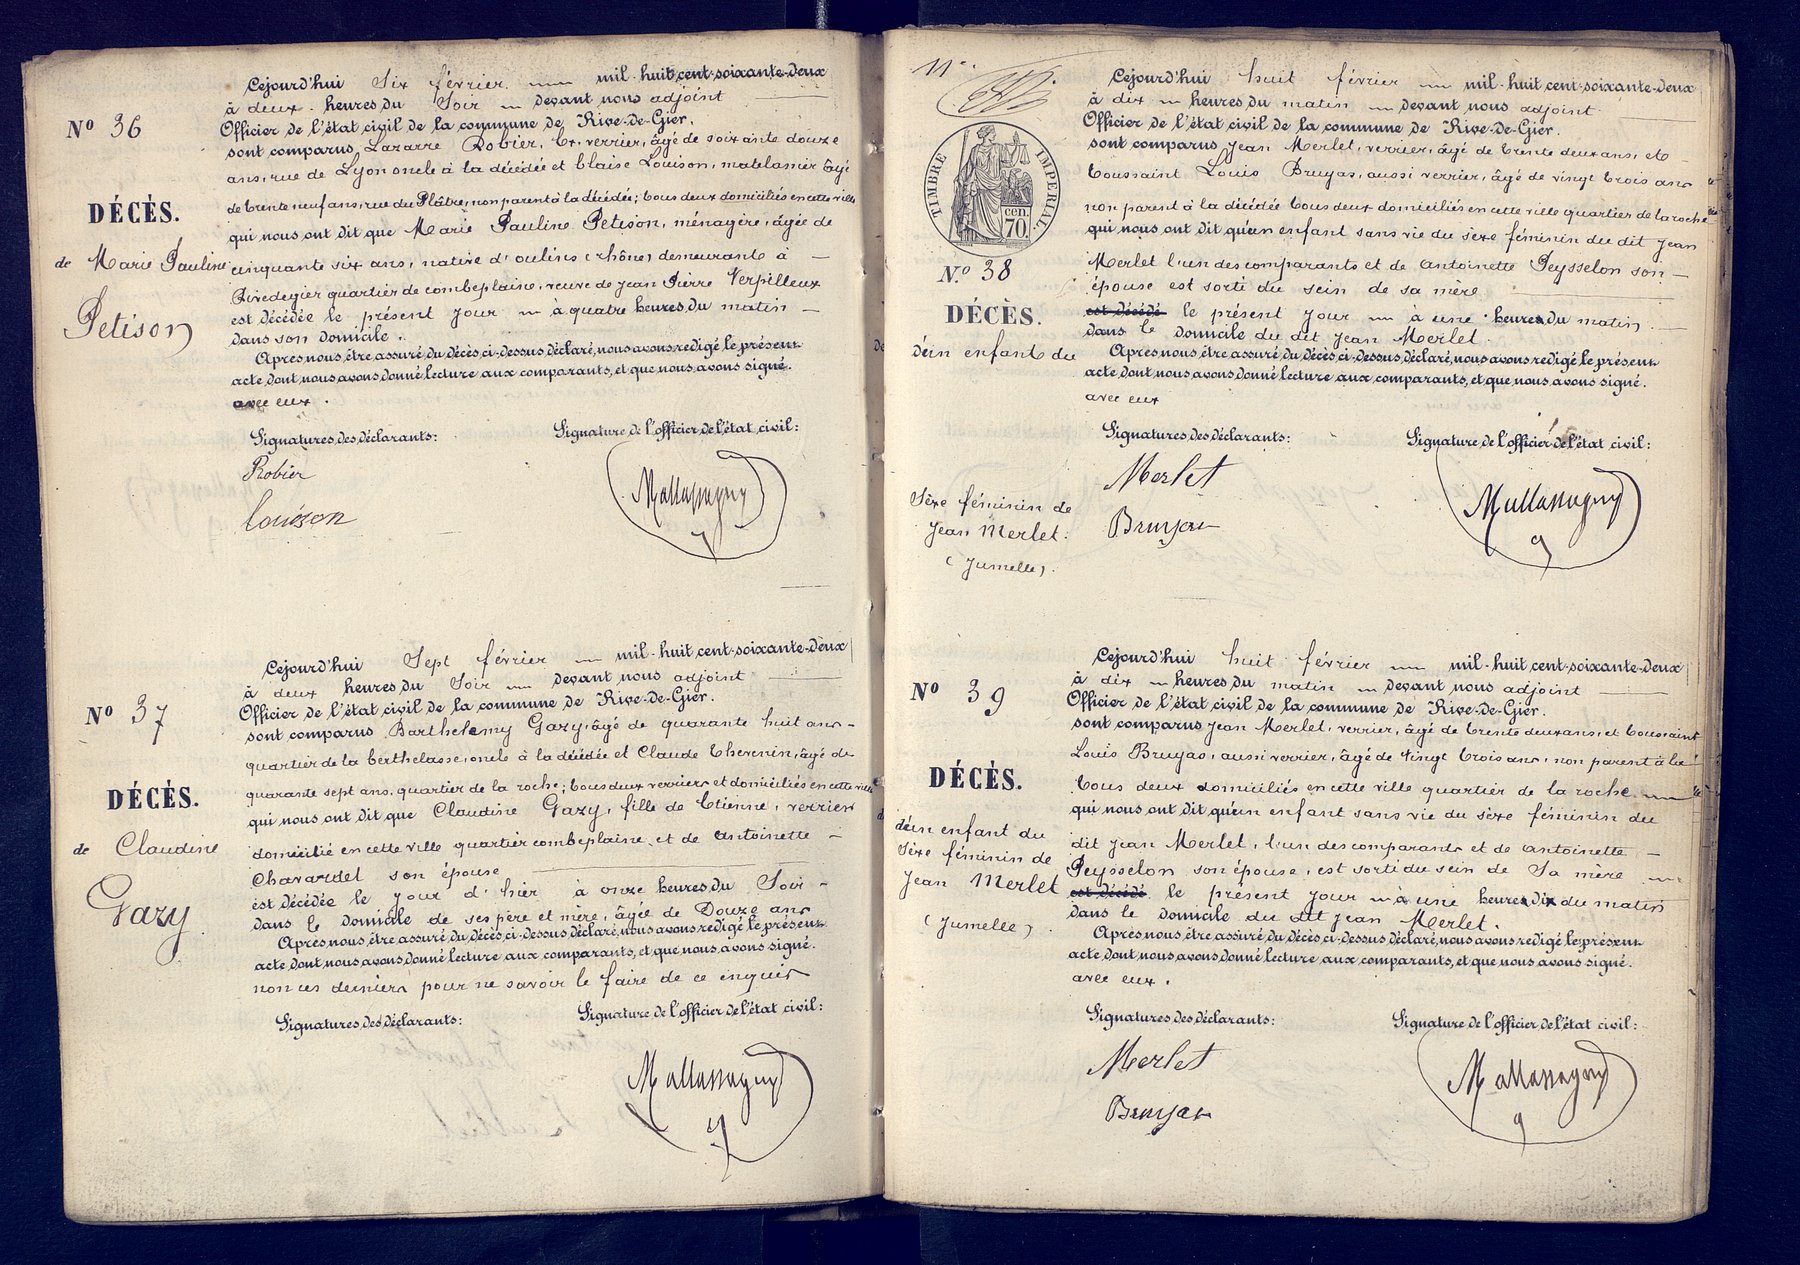 Nº 36
DÉCÈS.
de Marie Pauline
Petison
Cejourd'hui Six février mil-huit-cent-soixante-deux
à deux heures du Soir devant nous adjoint
Officier de l'état civil de la commune de Rive-de-Gier.
sont comparus Lazarre Robier, Ex. verrier, âgé de soixante douze
ans, rue de Lyon oncle à la décédée et blaise Louison, matelassier âgé
de trente neuf ans, rue du Plâtre, non parent à la décédée; tous deux domiciliés en cette ville
qui nous ont dit que Marie Pauline Petison, ménagère, âgée de
cinquante six ans, native d'oulins (rhône) demeurante à
Rivedegier quartier de combeplaine, veuve de jean Pierre Verpilleux
est décédée le présent jour à quatre heures du matin
dans son domicile.
Après nous être assuré du décès, ci-dessus déclaré, nous avons redigé le présent
acte dont nous avons donné lecture aux comparants, et que nous avons signé.
avec eux.
Signatures des déclarants: Signature de l'officier de l'état civil:
Robier
Louison
Mallassagny
Nº 37
DÉCÈS.
de Claudine
Gazy
Cejourd'hui Sept février mil-huit-cent-soixante-deux
à deux heures du Soir devant nous adjoint
Officier de l'état civil de la commune de Rive-de-Gier.
sont comparus Barthelemy Gazy, âgé de quarante huit ans
quartier de la berthelasse, oncle à la décédée et Claude thevenin, âgé de
quarante sept ans, quartier de la roche; tous deux verriers et domiciliés en cette ville
qui nous ont dit que Claudine Gazy, fille de Etienne, verrier
domicilié en cette ville quartier combeplaine, et de antoinette
Chavardel son épouse
est décédée le jour d'hier à onze heures du Soir
dans le domicile de ses père et mère, âgée de Douze ans
Après nous être assuré du décès, ci-dessus déclaré, nous avons redigé le présent
acte dont nous avons donné lecture aux comparants, et que nous avons signé.
non ces derniers pour ne savoir le faire de ce enquis
Signatures des déclarants: Signature de l'officier de l'état civil:
Mallassagny
11
TIMBRE IMPERIAL
70 cen.
Nº 38
DÉCÈS.
d'un enfant du
Sexe féminin de
Jean Merlet.
(Jumelle).
Cejourd'hui huit février mil-huit-cent-soixante-deux
à dix heures du matin devant nous adjoint
Officier de l'état civil de la commune de Rive-de-Gier.
sont comparus Jean Merlet, verrier, âgé de trente deux ans, et
toussaint Louis Bruyas, aussi verrier, âgé de vingt trois ans
non parent à la décédée tous deux domiciliés en cette ville quartier de la roche
qui nous ont dit qu'un enfant sans vie du sexe féminin du dit jean
Merlet l'un des comparants et de antoinette Peysselon son
épouse est sorti du sein de sa mère
est décédé le présent jour à une heure du matin
dans le domicile du dit jean Merlet.
Après nous être assuré du décès, ci-dessus déclaré, nous avons redigé le présent
acte dont nous avons donné lecture aux comparants, et que nous avons signé.
avec eux
Signatures des déclarants: Signature de l'officier de l'état civil:
Merlet
Bruyas
Mallassagny
Nº 39
DÉCÈS.
d'un enfant du
Sexe féminin de
Jean Merlet
(Jumelle)
Cejourd'hui huit février mil-huit-cent-soixante-deux
à dix heures du matin devant nous adjoint
Officier de l'état civil de la commune de Rive-de-Gier.
sont comparus Jean Merlet, verrier, âgé de trente deux ans, et toussaint
Louis Bruyas, aussi verrier, âgé de Vingt trois ans, non parent à la
tous deux domiciliés en cette ville quartier de la roche
qui nous ont dit qu'un enfant sans vie du sexe féminin du
dit Jean Merlet, l'un des comparants et de antoinette
Peysselon son épouse, est sorti du sein de Sa mère
est décédé le présent jour à une heure dix du matin
dans le domicile du dit jean Merlet.
Après nous être assuré du décès, ci-dessus déclaré, nous avons redigé le présent
acte dont nous avons donné lecture aux comparants, et que nous avons signé.
avec eux.
Signatures des déclarants: Signature de l'officier de l'état civil:
Merlet
Bruyas
Mallassagny